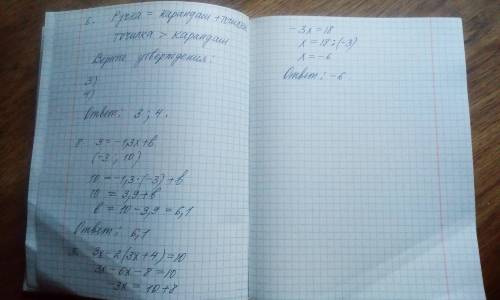 6. Ручка = карандаш + точилка
точилка > карандаш
Верные утверждения:
3)
4)
Ответ: 3; 4.
8. y = -1,3x+b
(-3; 10)
10 = -1,3·(-3)+b
10 = 3,9+b
b = 10-3,9 = 6,1
Ответ: 6,1
3x-2(3x+4)=10
3x-6x-8=10
-3x = 10+8
-3x = 18
x = 18:(-3)
x = -6
Ответ: -6